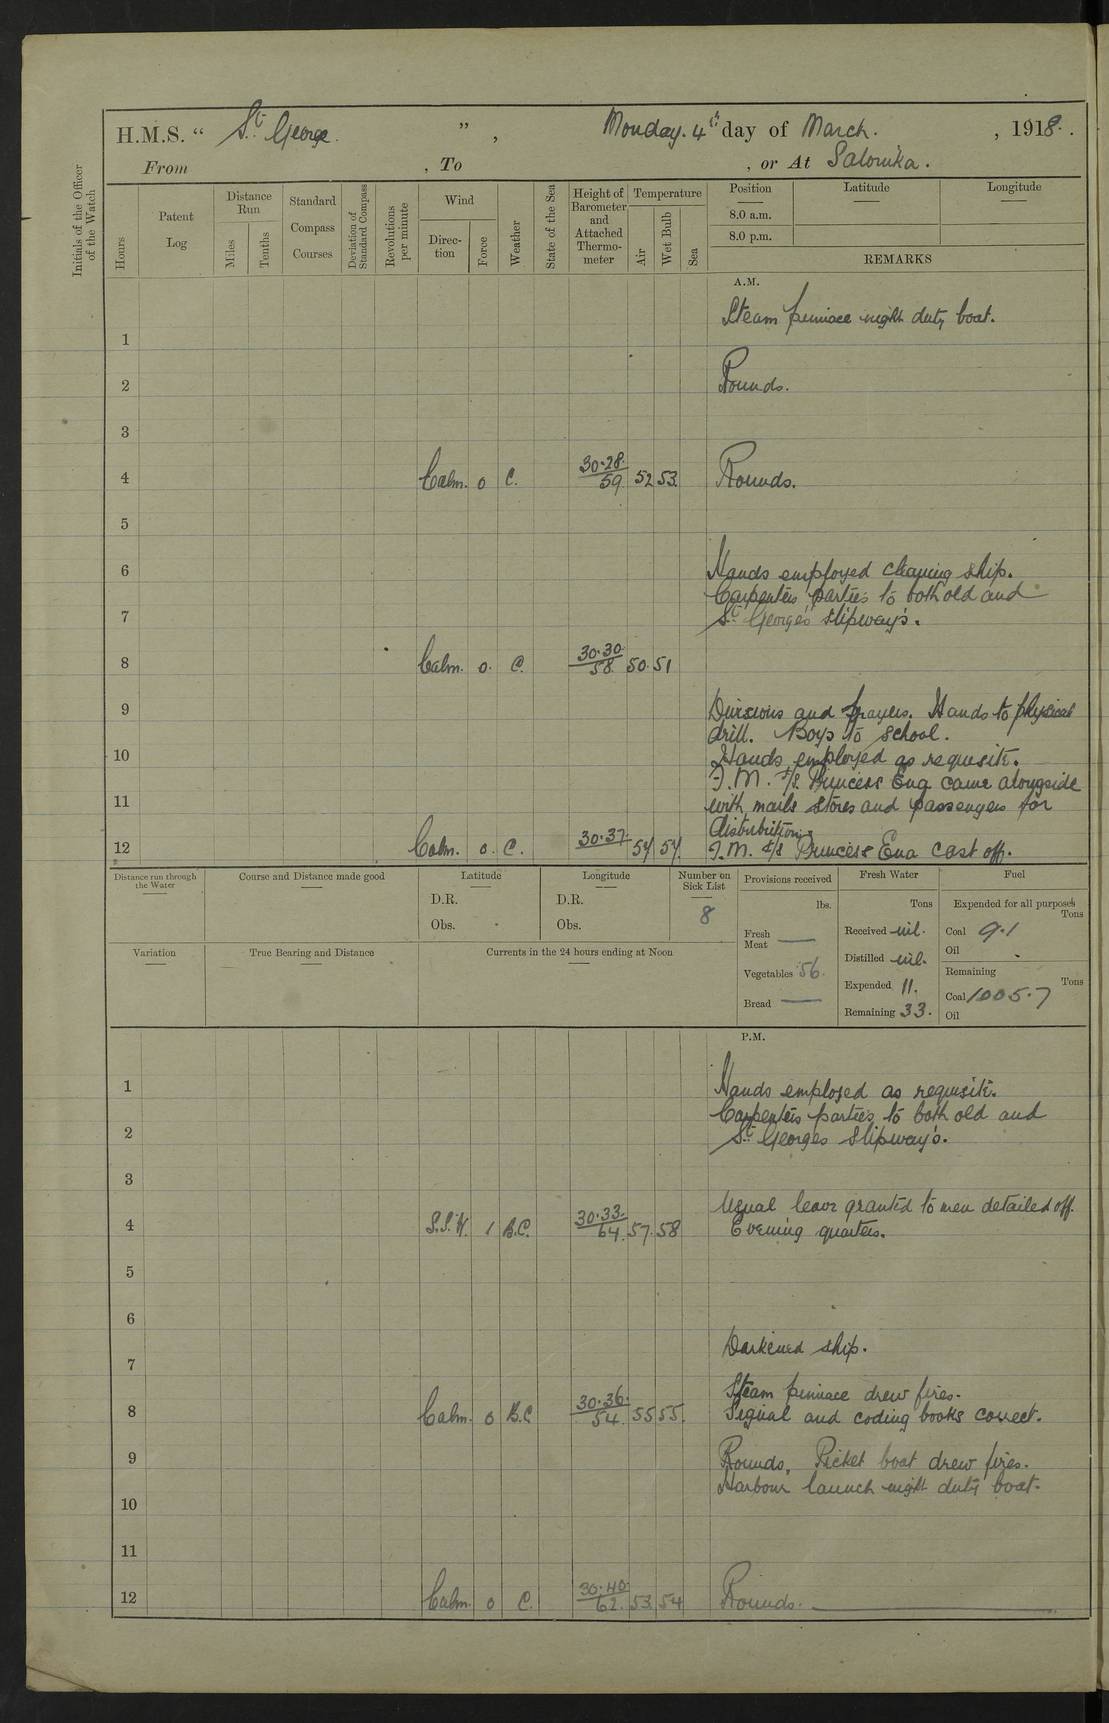 H.M.S. “ St. George. ” , Monday. 4th day of March. , 1918.
From , To , or At Salonika.
Initials of the Officer of the Watch
Hours
Patent Log
Distance Run
Miles
Tenths
Standard Compass Courses
Deviation of Standard Compass
Revolutions per minute
Wind
Direction
Force
Weather
State of the Sea
Height of Barometer and Attached Thermometer
Temperature
Air
Wet Bulb
Sea
Position
8.0 a.m.
8.0 p.m.
Latitude
Longitude
REMARKS
A.M.
Steam pinnace night duty boat.
1
2 Rounds.
3
4 Calm. 0 C. 30.28. 59 52 53. Rounds.
5
6 Hands employed cleaning ship.
Carpenters parties to both old and
7 St. George's slipway's.
8 Calm. 0. C. 30.30. 58. 50. 51
9 Divisions and prayers. Hands to physical
drill. Boys to school.
10 Hands employed as requisite.
F.M. S/S Princess Ena came alongside
11 with mails stores and passengers for
distribution.
12 Calm. 0. C. 30.37. 54 54. F.M. S/S Princess Ena cast off.
Distance run through the Water
Course and Distance made good
Latitude
D.R.
Obs.
Longitude
D.R.
Obs.
Number on Sick List
8
Provisions received
lbs.
Fresh Meat —
Vegetables 56.
Bread —
Fresh Water
Tons
Received nil.
Distilled nil.
Expended 11.
Remaining 33.
Fuel
Expended for all purposes
Tons
Coal 9.1
Oil
Remaining
Tons
Coal 1005.7
Oil
Variation
True Bearing and Distance
Currents in the 24 hours ending at Noon
P.M.
1 Hands employed as requisite.
Carpenters parties to both old and
2 St. Georges slipway's.
3
Usual leave granted to men detailed off.
4 S.S.W. 1 B.C. 30.33. 64. 57. 58 Evening quarters.
5
6
Darkened ship.
7
Steam pinnace drew fires.
8 Calm. 0 B.C 30.36. 54. 55 55. Signal and coding books correct.
9 Rounds. Picket boat drew fires.
Harbour launch night duty boat.
10
11
12 Calm. 0 C. 30.40. 62. 53. 54 Rounds.